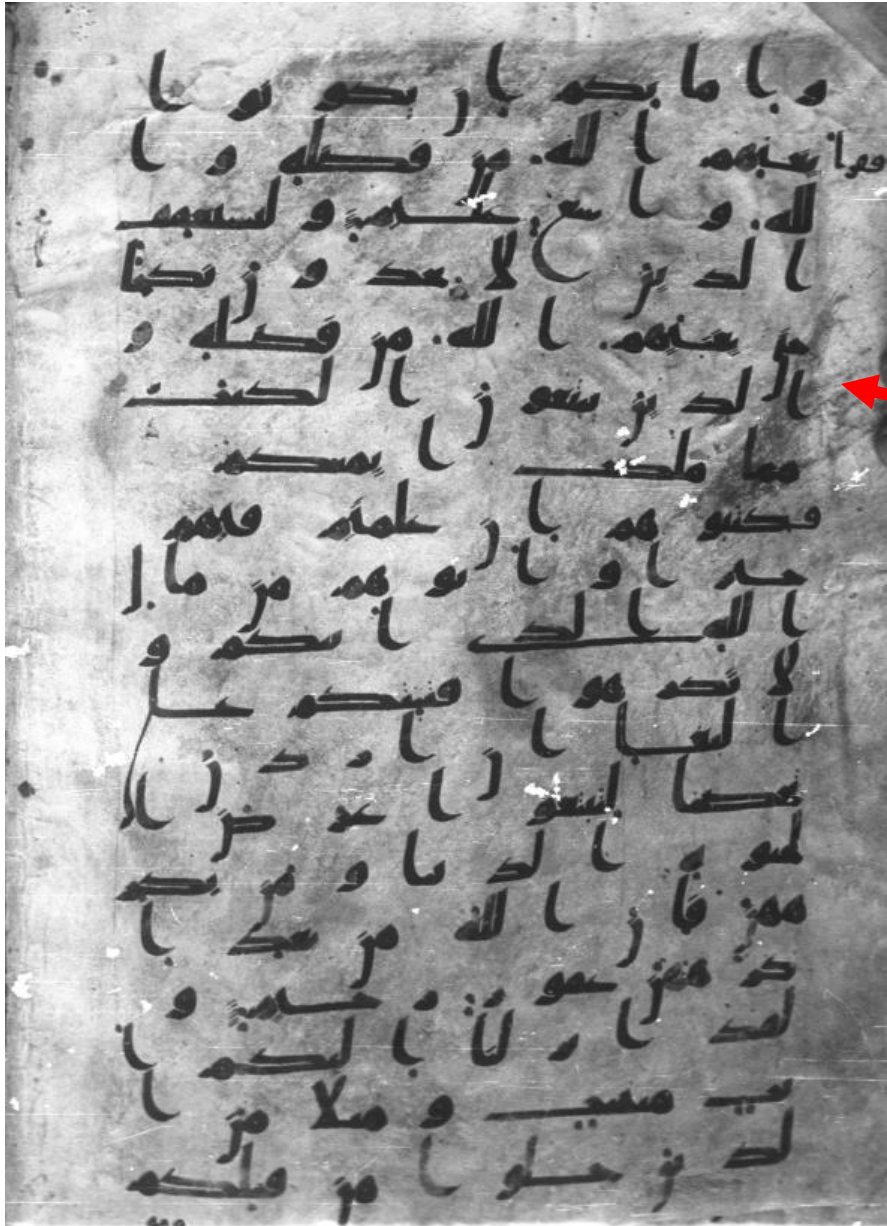 و ا ما يكم ا ن يكو نو ا
فقرا يغنهم ا لله من فضله و ا
لله و ا سع عليم و ليستعفف
ا لذ ين لا يجد و ن نكحا
حتى يغنيهم ا لله من فضله و
ا لذ ين يبتغو ن ا لكتب
مما ملكت ا يمنكم
فكتبو هم ا ن علمتم فيهم
خير ا و ا تو هم من ما ل
ا لله ا لذ ي ا تيكم و
لا تكر هو ا فتيتكم على
ا لبغا ا ن ا ر د ن
تحصنا لتبتغو ا عر ض ا
لحيو ة ا لد نيا و من يكر
ههن فا ن ا لله من بعد ا
كر ههن غفو ر ر حيم و
لقد ا نز لنا ا ليكم ا
يت مبينت و مثلا من ا
لذ ين خلو ا من قبلكم